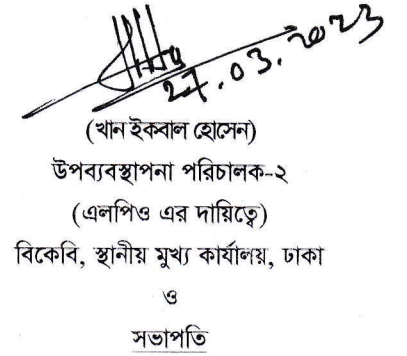 27.03.2023
(খান ইকবাল হোসেন)
উপব্যবস্থাপনা পরিচালক-২
(এলপিও এর দায়িত্বে)
বিকেবি, স্থানীয় মুখ্য কার্যালয়, ঢাকা
ও
সভাপতি